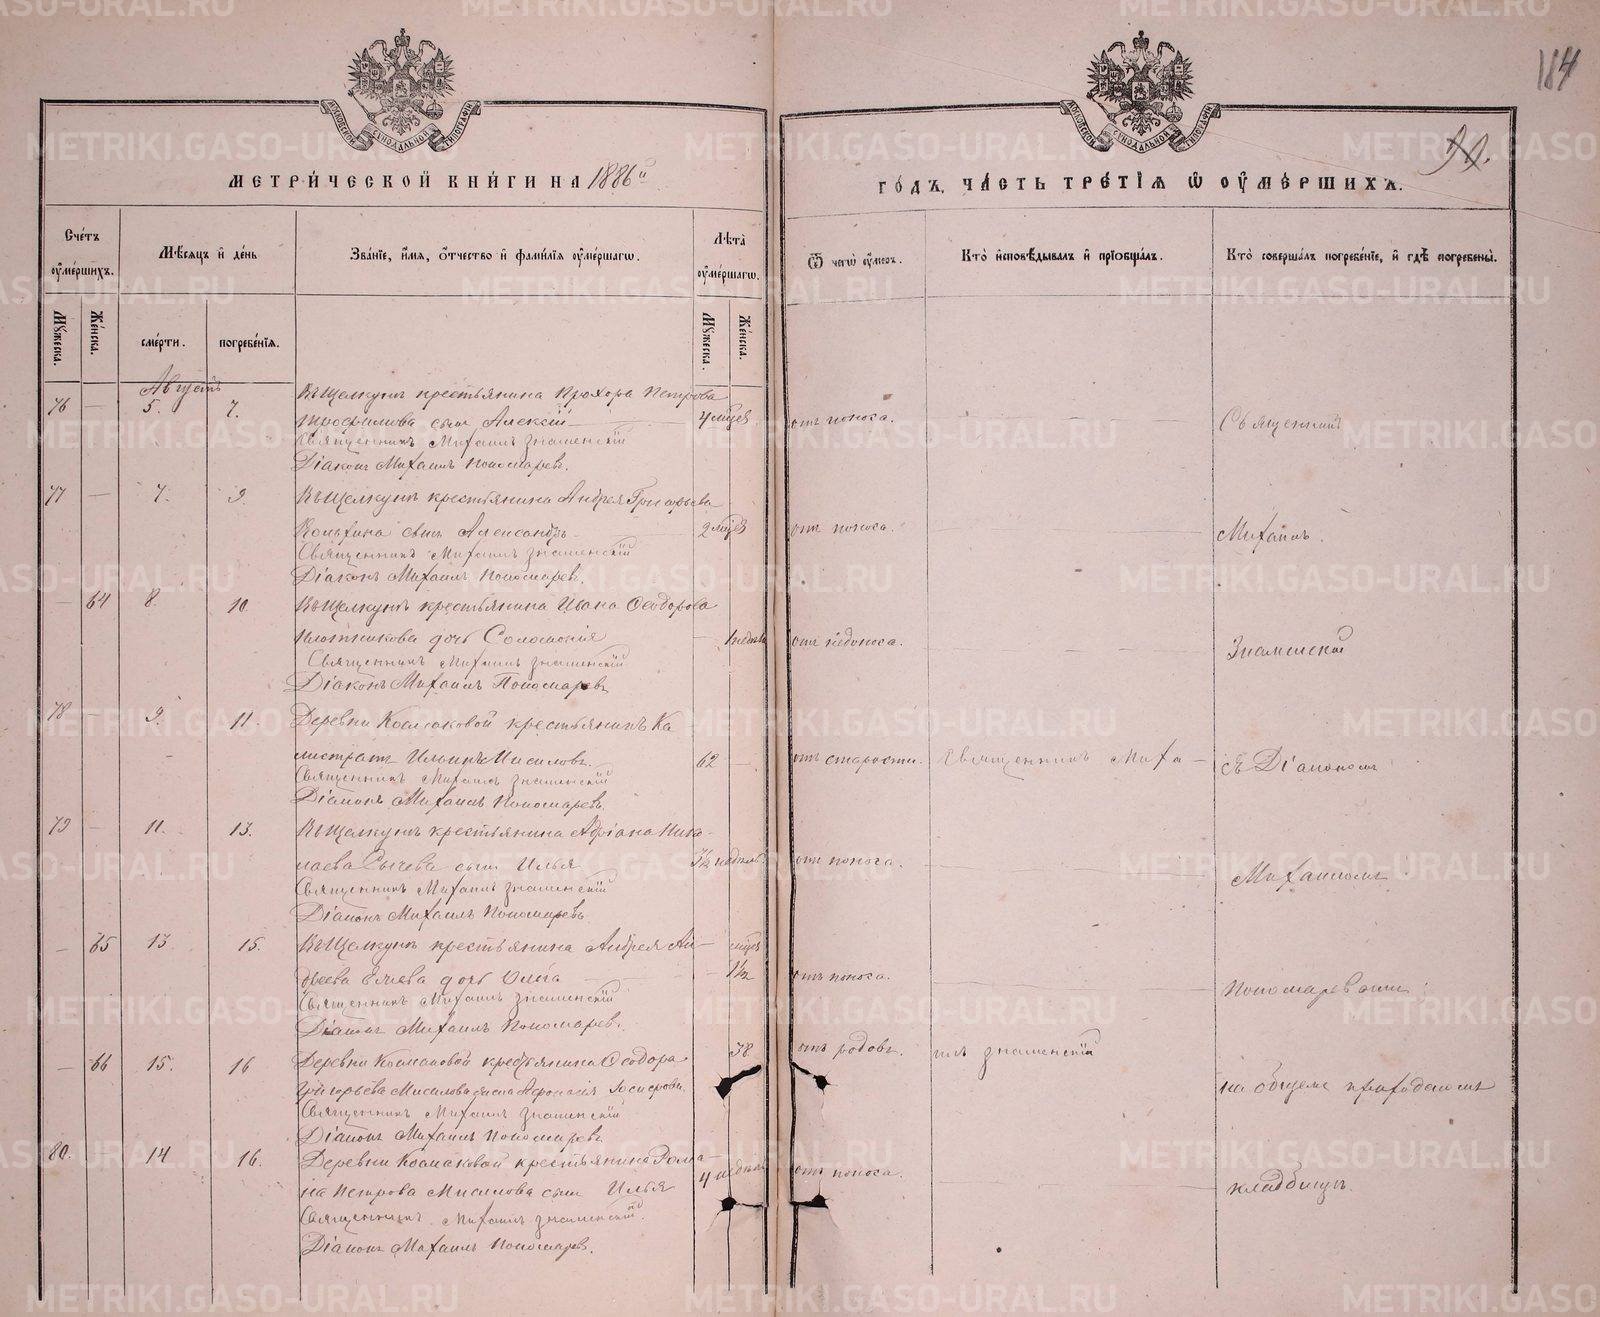 184
99.
МОСКОВСКОЙ СУНОДАЛЬНОЙ ТИПОГРАФІИ
МОСКОВСКОЙ СУНОДАЛЬНОЙ ТИПОГРАФІИ
МЕТРИЧЕСКОЙ КНИГИ НА 1886й
ГОДЪ, ЧАСТЬ ТРЕТІЯ Ѡ ОУМЕРШИХЪ.
Счетъ оумершихъ.
Мѣсяцъ и день
Званіе, имя, отчество и фамилія оумершагѡ.
Лѣта оумершагѡ.
Ѿ чегѡ оумеръ.
Кто исповѣдывалъ и пріобщалъ.
Кто совершалъ погребеніе, и гдѣ погребены.
Мужеска.
Женска.
смерти.
погребенія.
Мужеска.
Женска.
Августъ
Въ Щелкунѣ крестьянина Прохора Петрова
76 — 5. 7. Трофимова сынъ Алексій — 4 мѣсяц. отъ поноса. Священникъ
Священникъ Михаилъ Знаменскій
Діаконъ Михаилъ Пономаревъ.
77 — 7. 9. Въ Щелкунѣ крестьянина Андрея Григорьева
сынъ Александръ — 2 мѣсяц. отъ поноса. Михаилъ
Священникъ Михаилъ Знаменскій
Діаконъ Михаилъ Пономаревъ.
— 64 8. 10. Въ Щелкунѣ крестьянина Ивана Ѳеодорова
Плотникова дочь Соломонія — 1 недѣли отъ недоноса. Знаменскій
Священникъ Михаилъ Знаменскій
Діаконъ Михаилъ Пономаревъ
78 — 9. 11. Деревни Космаковой крестьянинъ Ка
листратъ Ильинъ Мисиловъ. 62 — отъ старости. Священникъ Миха — съ Діакономъ
Священникъ Михаилъ Знаменскій
Діаконъ Михаилъ Пономаревъ.
79 — 11. 13. Въ Щелкунѣ крестьянина Адріана Нико-
лаева Сычева сынъ Илья 3½ недѣль отъ поноса. Михаиломъ
Священникъ Михаилъ Знаменскій
Діаконъ Михаилъ Пономаревъ
— 65 13 15. Въ Щелкунѣ крестьянина Андрея Ан- мѣсяц.
дреева дочь Ольга — 1½ отъ поноса. Пономаревымъ
Священникъ Михаилъ Знаменскій
Діаконъ Михаилъ Пономаревъ.
— 66 15. 16 Деревни Космаковой крестьянина Ѳеодора 38 отъ родовъ. илъ Знаменскій
Григорьева Мисилова жена Афанасія на общемъ приходскомъ
Священникъ Михаилъ Знаменскій
Діаконъ Михаилъ Пономаревъ
80. 14 16. Деревни Космаковой крестьянина Рома-
на Петрова Мисилова сынъ Илья 4 недѣли отъ поноса. кладбищѣ.
Священникъ Михаилъ Знаменскій.
Діаконъ Михаилъ Пономаревъ.
METRIKI.GASO-URAL.RU